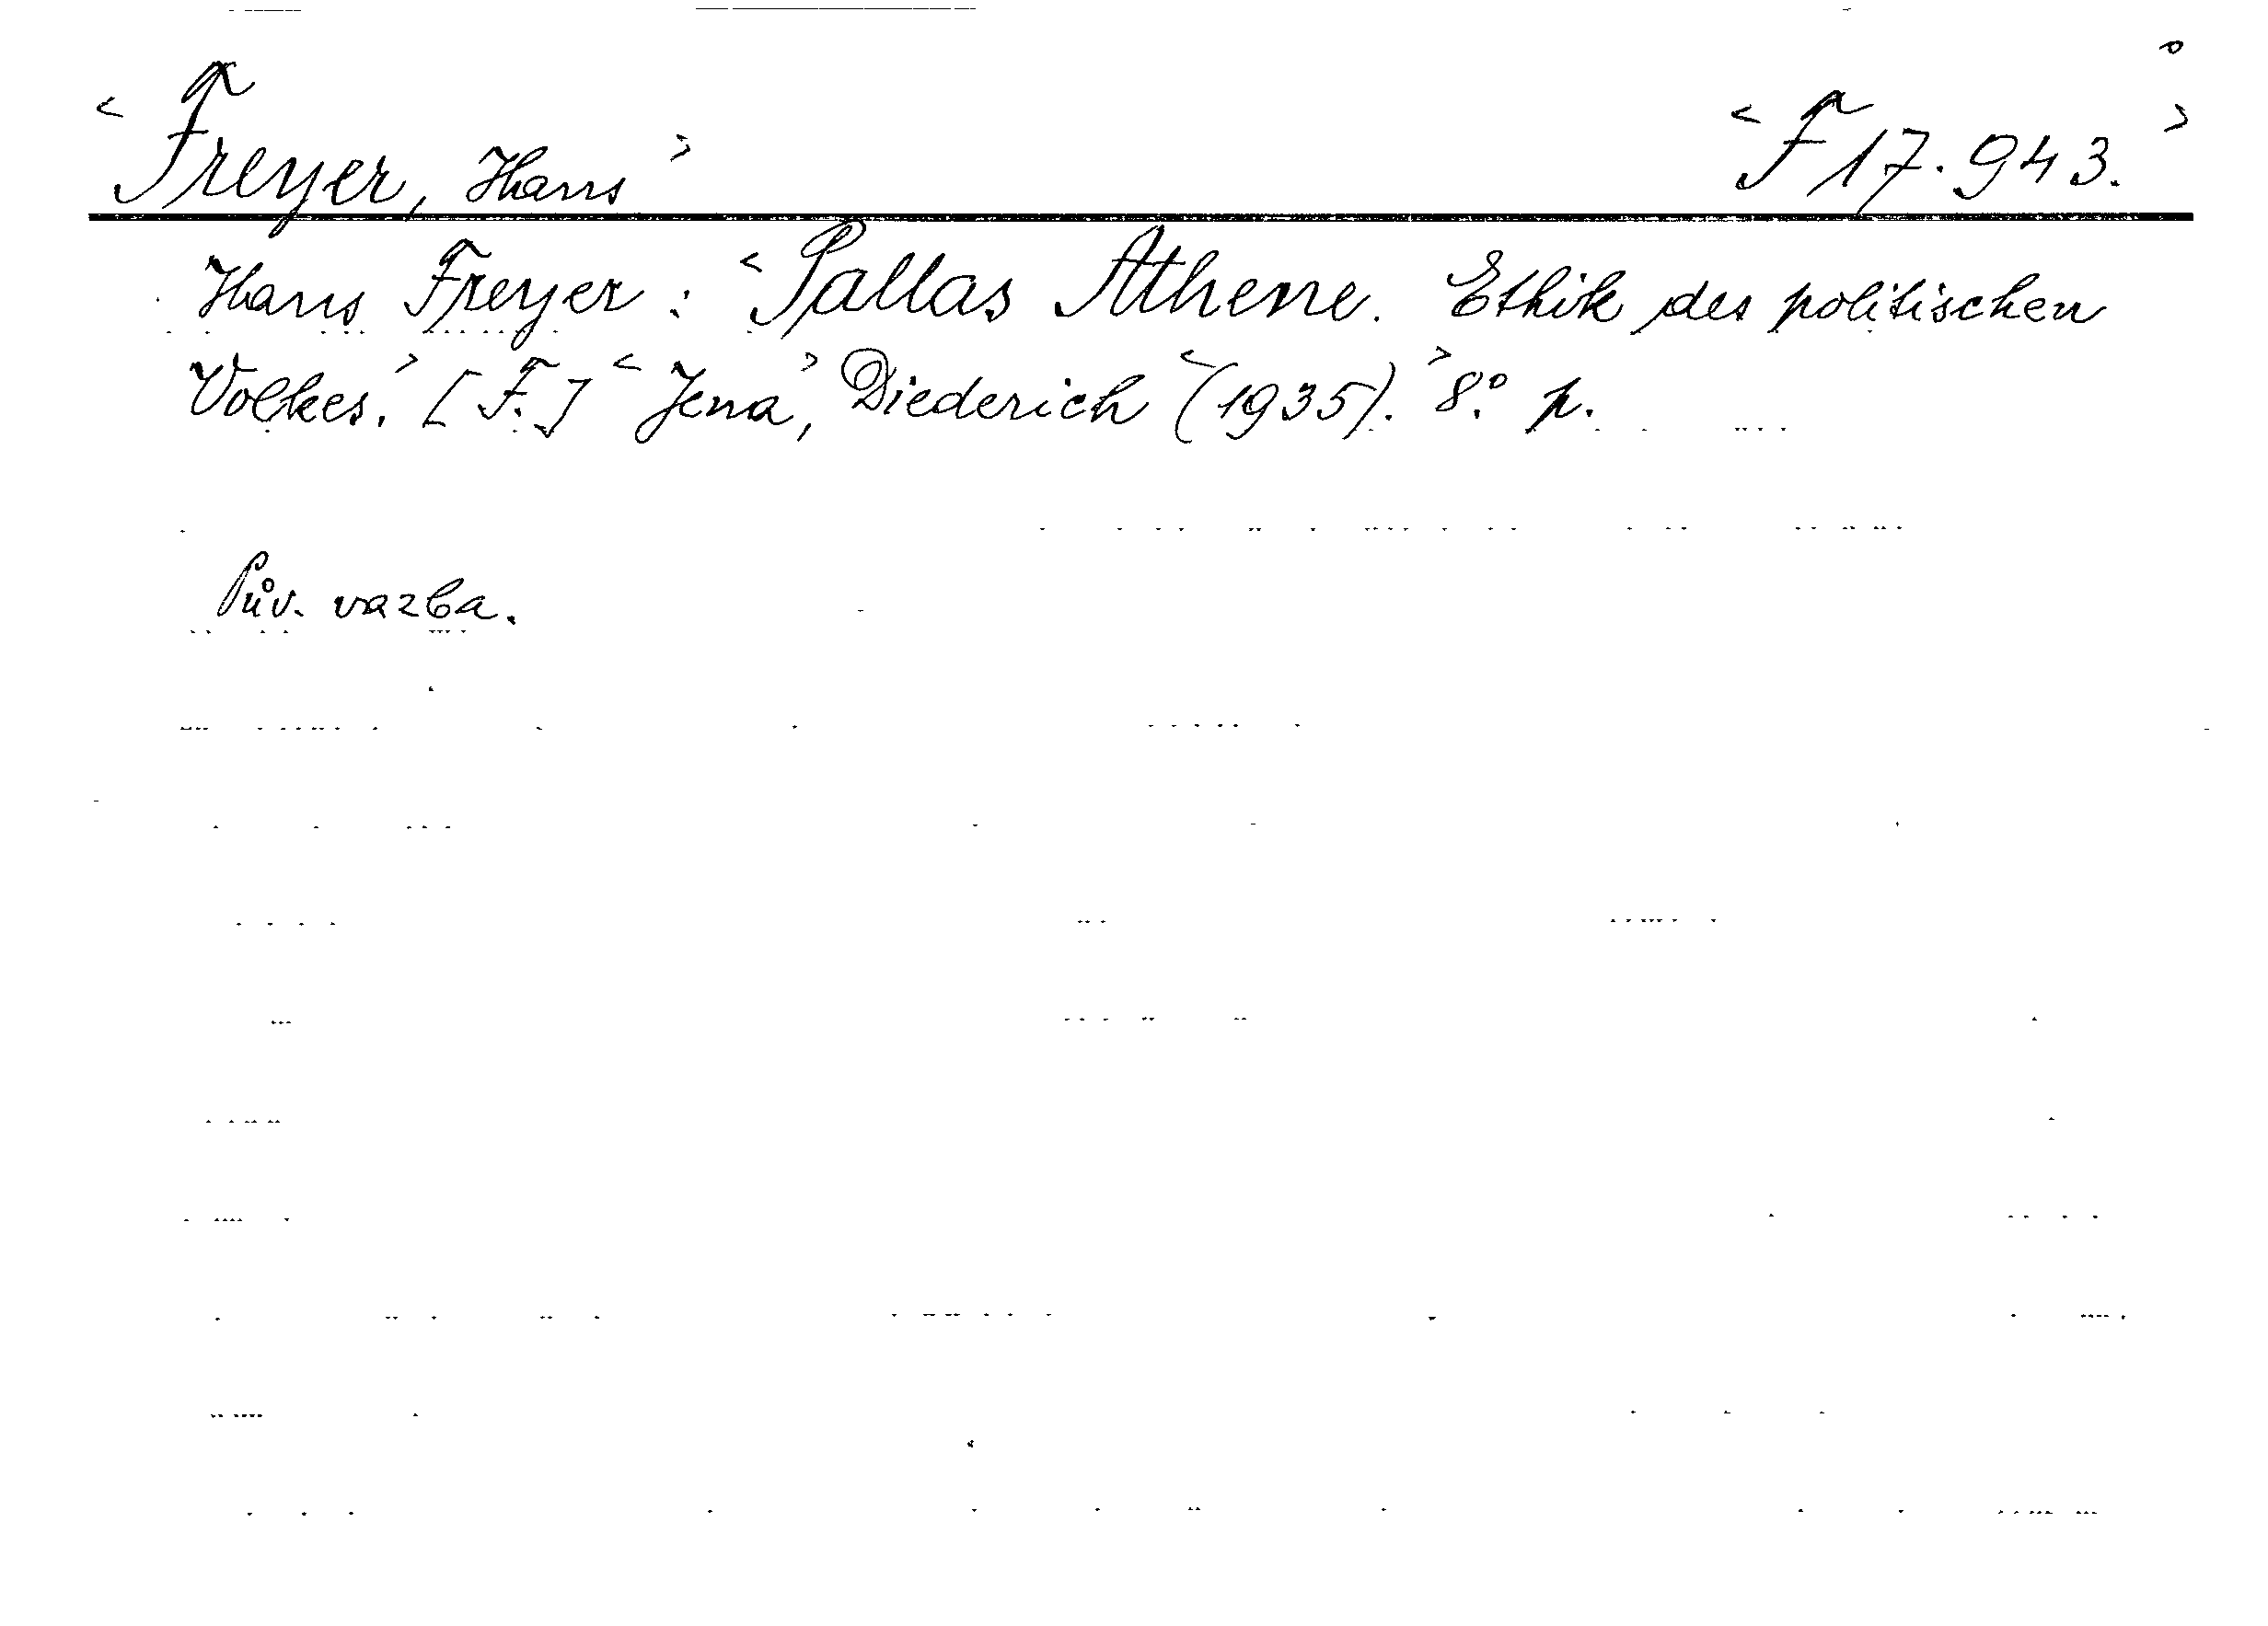 <Freyer, Hans> <F 17.943.>
Hans Freyer: <Pallas Athene. Ethik des politischen
Volkes.> [F.] <Jena>, Diederich <(1935).> 8.° p.
Pův. vazba.